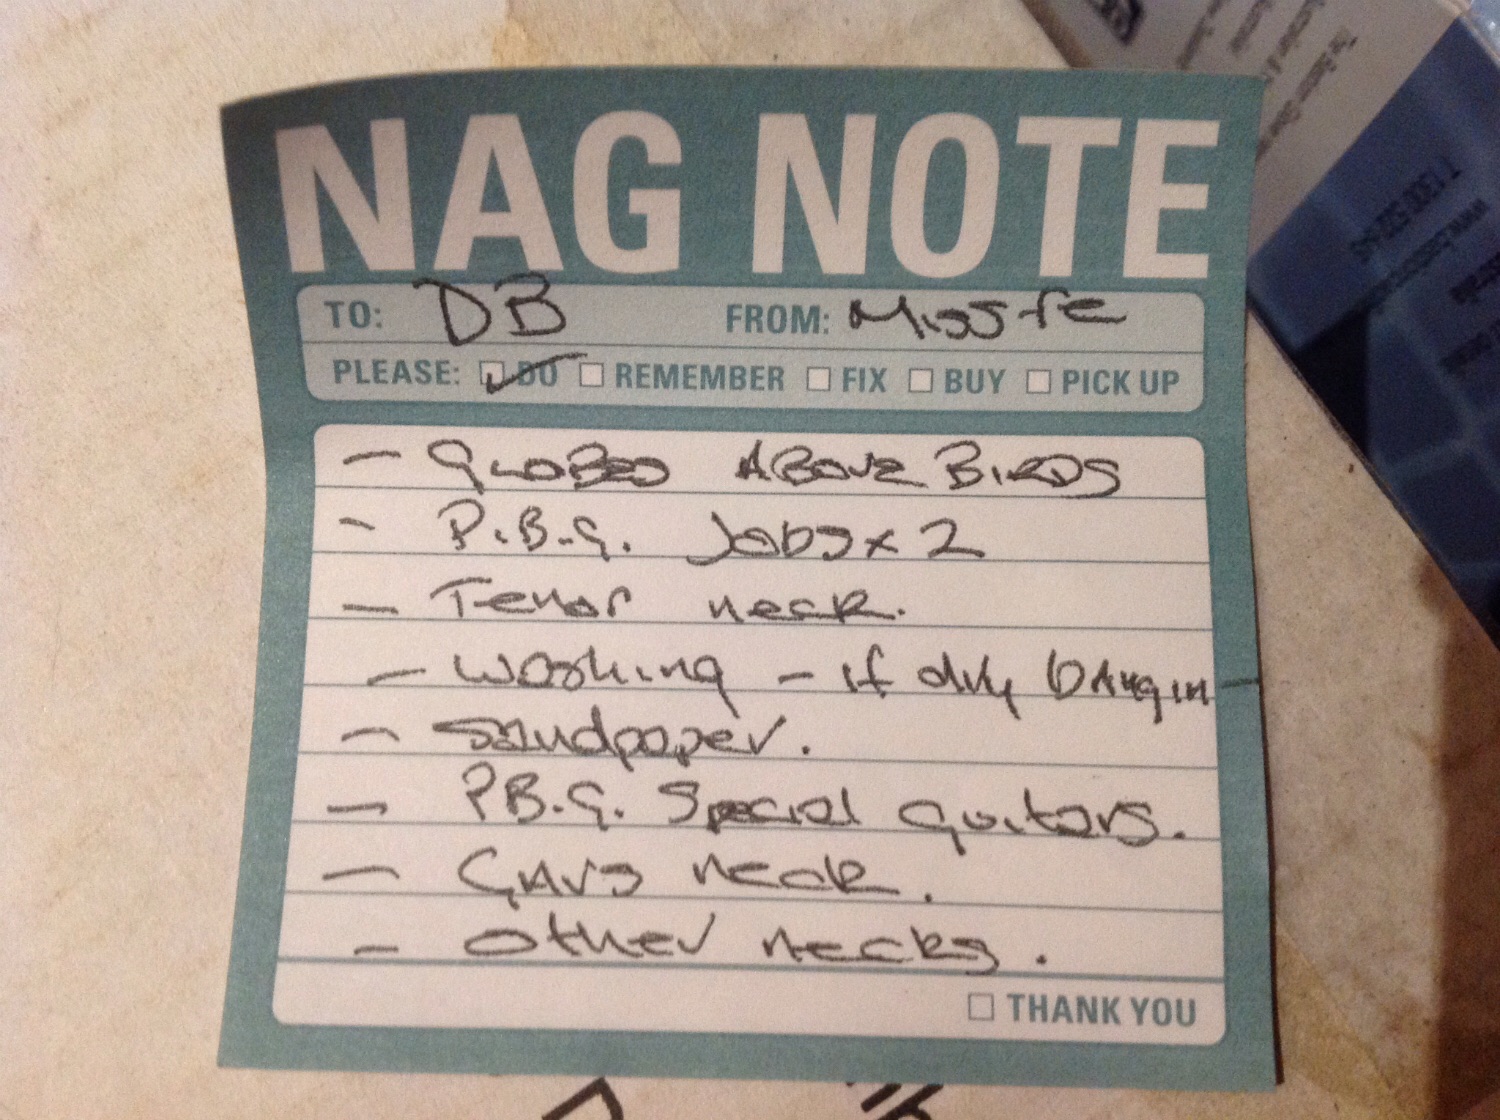 NAG NOTE
TO: DB FROM: Missfe
PLEASE: DO REMEMBER FIX BUY PICK UP
- GLOBES ABOVE BIRDS
- P.B.G. Jobs x 2
- Tenor neck.
- Washing - if dry bring in
- Sandpaper.
- P.B.G. Special guitars.
- neck.
- other necks.
THANK YOU